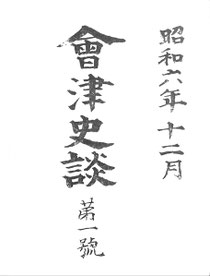 昭和六年十二月
會津史談
第一號